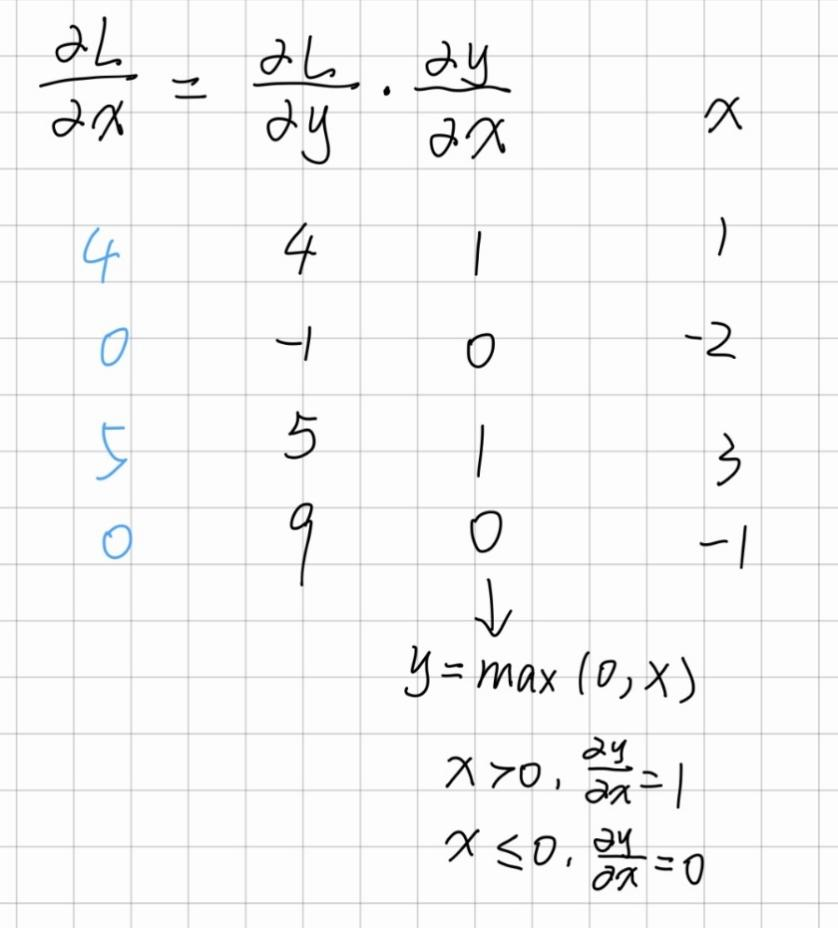 ∂L/∂x = ∂L/∂y · ∂y/∂x x
4 4 1 1
0 -1 0 -2
5 5 1 3
0 9 0 -1
↓
y = max (0, x)
x > 0, ∂y/∂x = 1
x ≤ 0, ∂y/∂x = 0